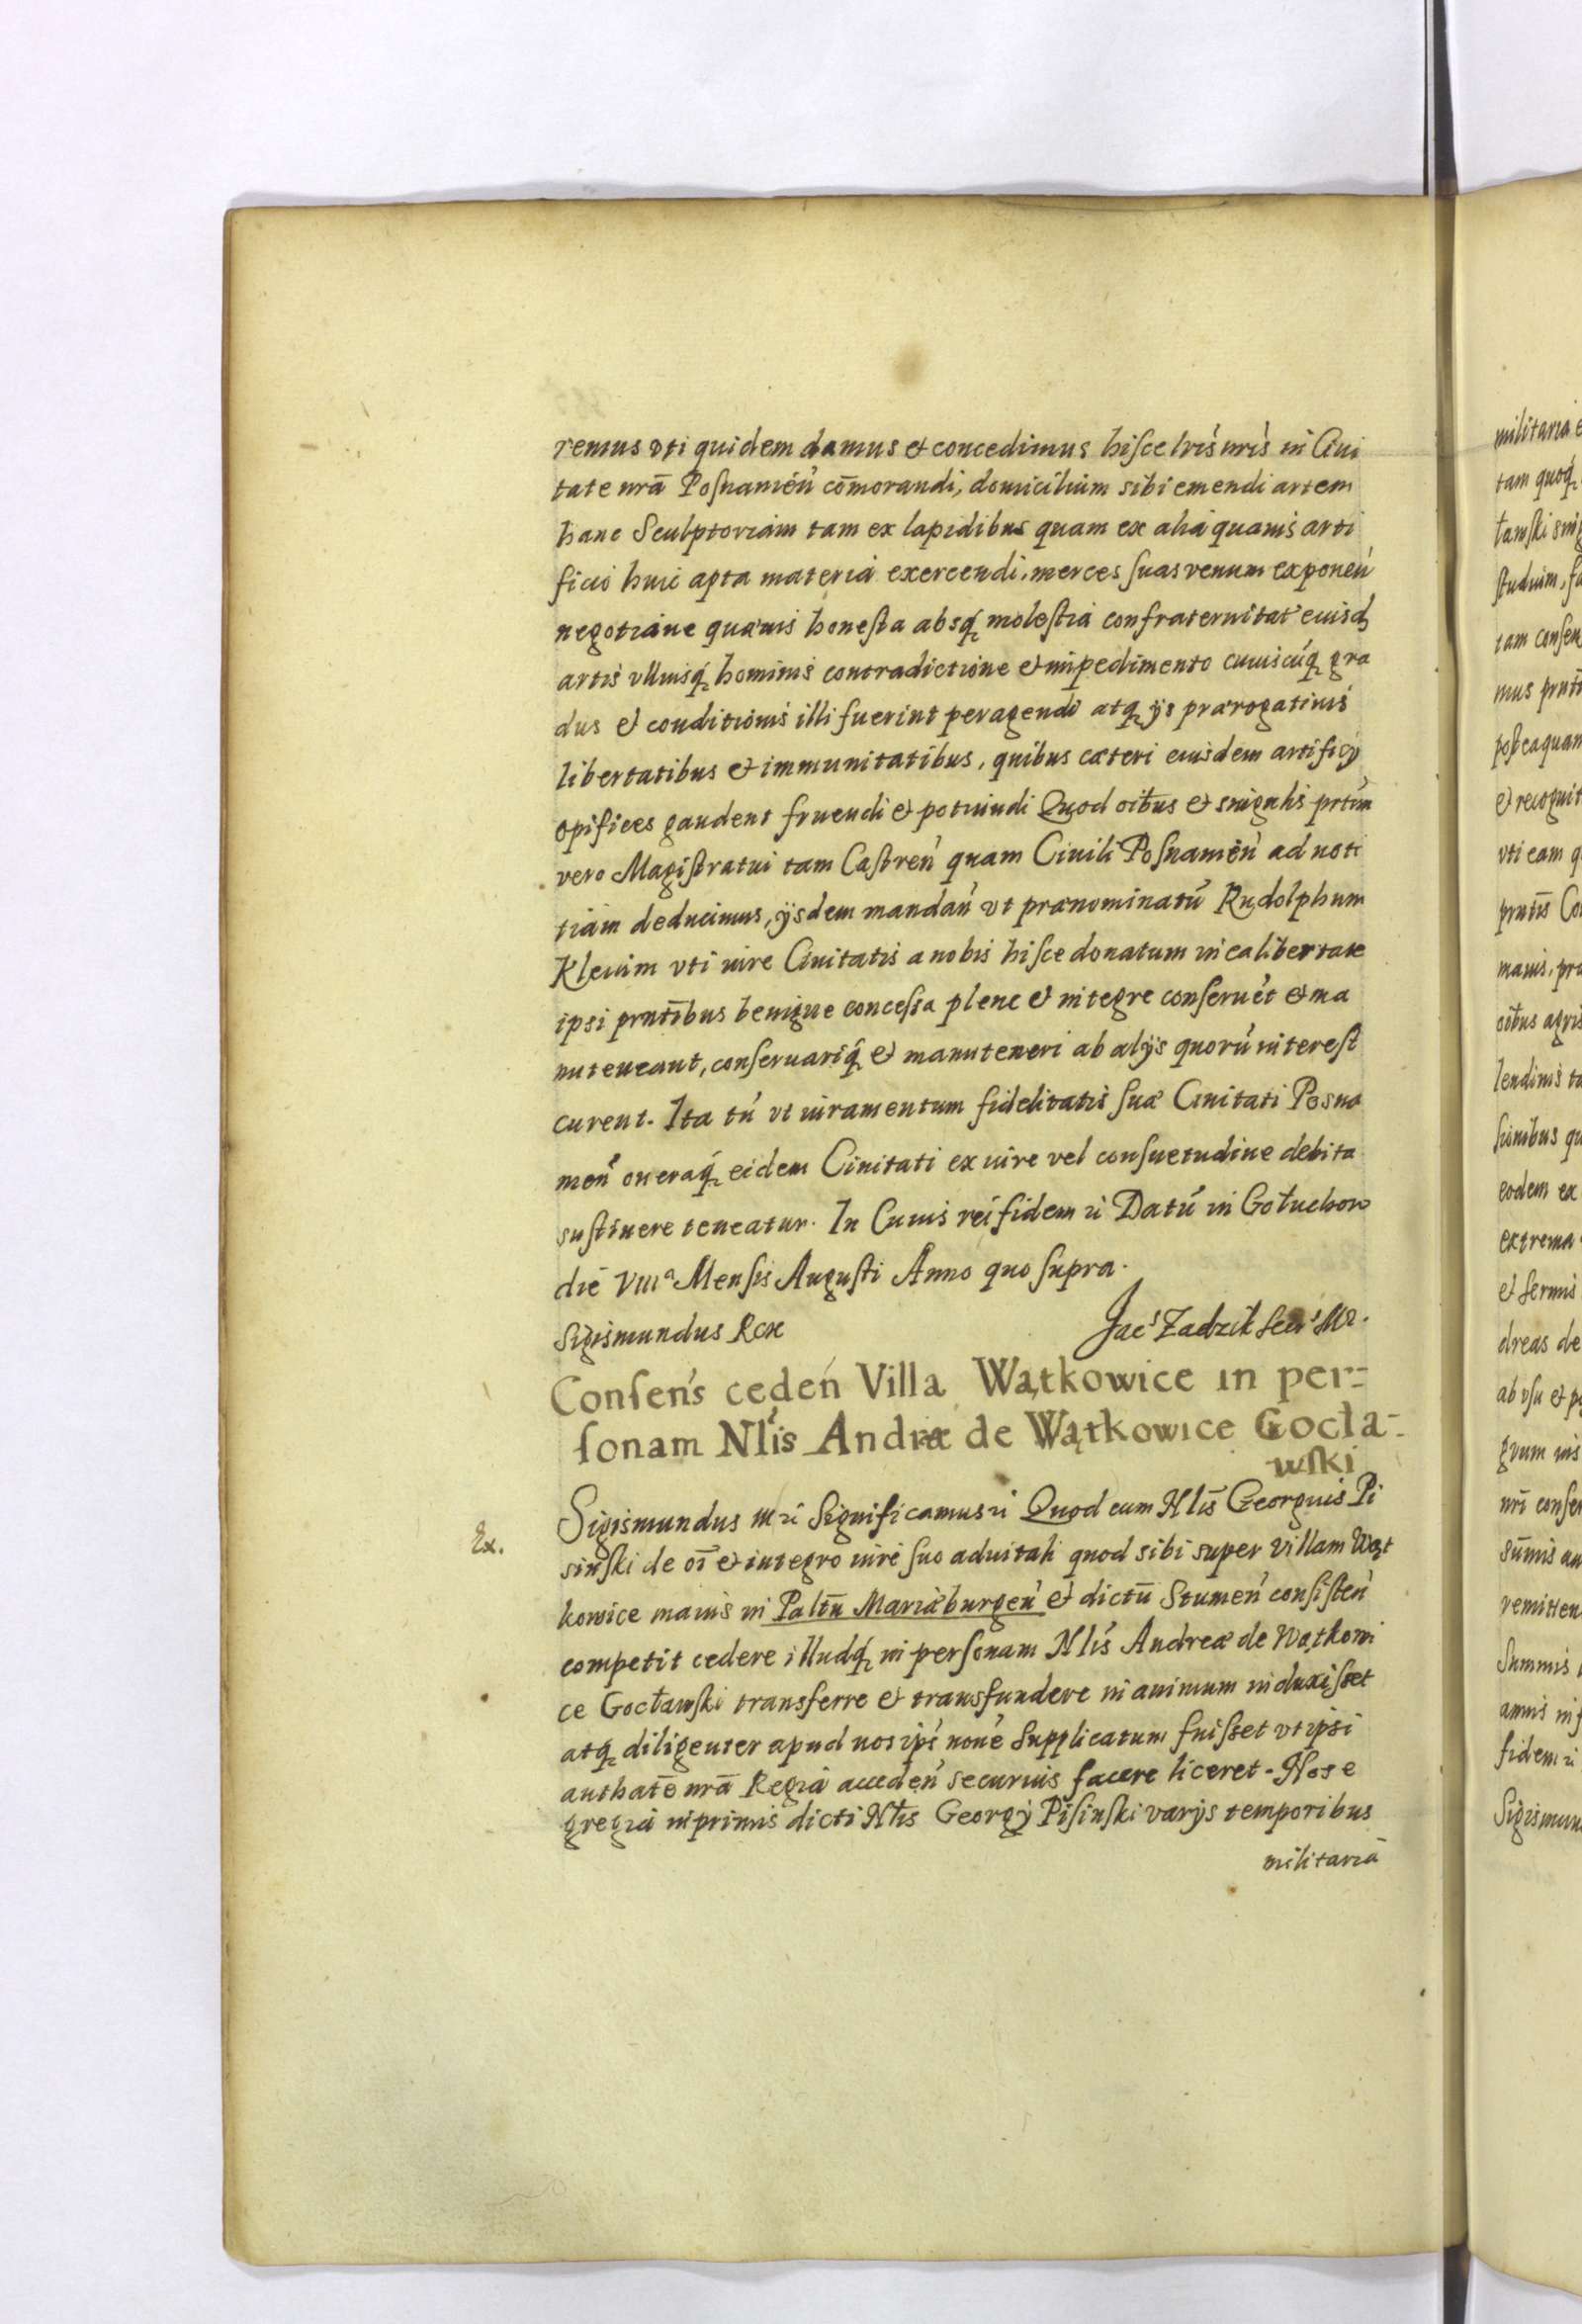 remus vti quidem damus et concedimus hisce lr̃is nr̃is in Ciui
tate nr̃a Posnamen̄ com̄orandi, domicilium sibi emendi artem
hanc Sculptoriam tam ex lapidibus quam ex alia quauis arti
ficio huic apta materia exercendi, merces suas venum exponen̄
negotiaue quæuis honesta absq́ molestia confraternitat̃ eiusd
artis vlliusq́ hominis contradictione et impedimento cuiuscúq́ gra
dus et conditionis illi fuerint peragendi atq́ ijs prærogatiuis
libertatibus et immunitatibus, quibus cæteri eiusdem artificÿ
opifices gaudent fruendi et potiundi Quod oib̃us et singulis prt́im
vero Magistratui tam Castren̄ quam Ciuili Posnamen̄ ad noti
tiam deducimus, ijsdem mandan̄ vt prænominatū Rudolphum
Kleuim vti iure Ciuitatis a nobis hisce donatum in ea libertate
ipsi prñtibus benigne concessa plene et integre conseruet et ma
nuteneant, conseruariq́ et manuteneri ab alijs quorū interest
curent. Ita tń vt iuramentum fidelitatis suæ Ciuitati Posna
men̄ oneraq́ eidem Ciuitati ex iure vel consuetudine debita
sustinere teneatur. In Cuius rei fidem ꝛc Datū in Gołuchow
die VIIIa Mensis Augusti Anno quo supra.
Sigismundus Rex
Jac's Zadzik Secr's Mr.
Consen's ceden̄ Villa Wątkowice in per-
sonam Nl̃is Andræ de Wątkowice Gocła-
wski
Ex.
Sigismundus III ꝛc Significamus ꝛc Quod cum Nl̃is Georgius Pi
sinski de oĩ et integro iure suo aduitali quod sibi super villam Wąt
kowice mauis in Palt̃u Mariæburgen̄ et dictū Stumen̄ consisten̄
competit cedere illudq́ in personam Nl̃is Andreæ de Wątkowi
ce Gocławski transferre et transfundere in animum induxisset
atq́ diligenter apud nos ip̃i noñe supplicatum fuisset vt ipsi
authat̃e nr̃a Regia acceden̄ securius facere liceret. Nos e
gregia inprimis dicti Nl̃is Georgÿ Pisinski varijs temporibus
militaria